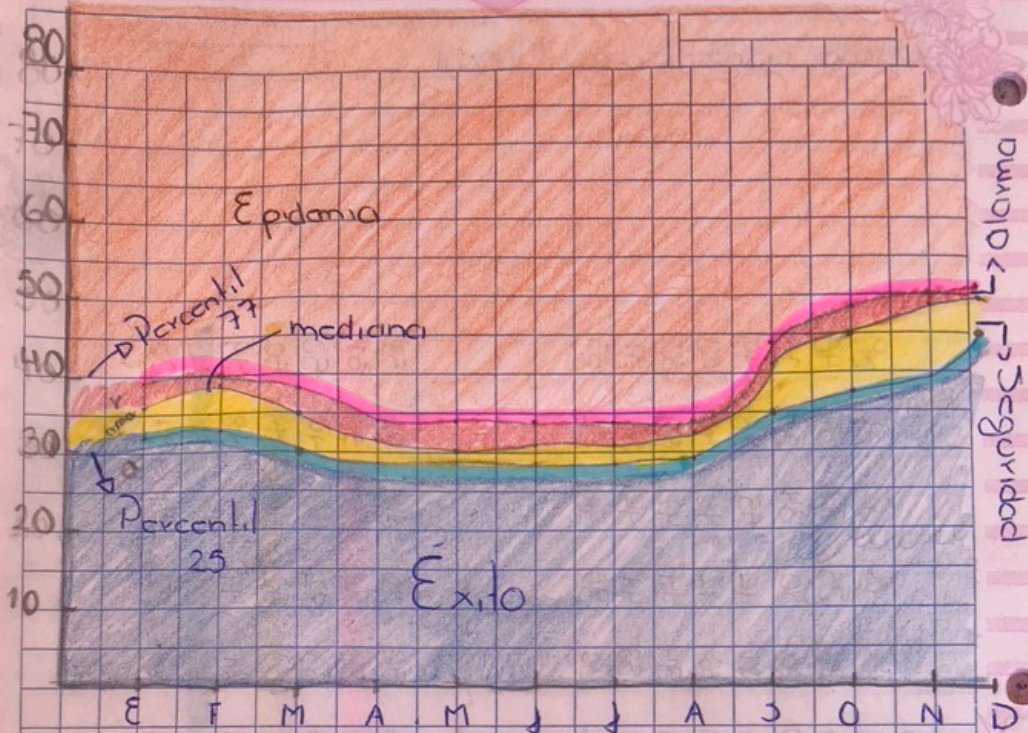 80
70
60
50
40
30
20
10
Epidemia
Percentil
77
mediana
Percentil
25
Éxito
L> alarma
L> Seguridad
E F M A M J J A S O N D